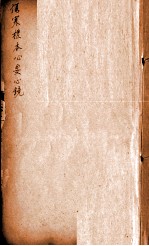 傷寒標本心要心鏡